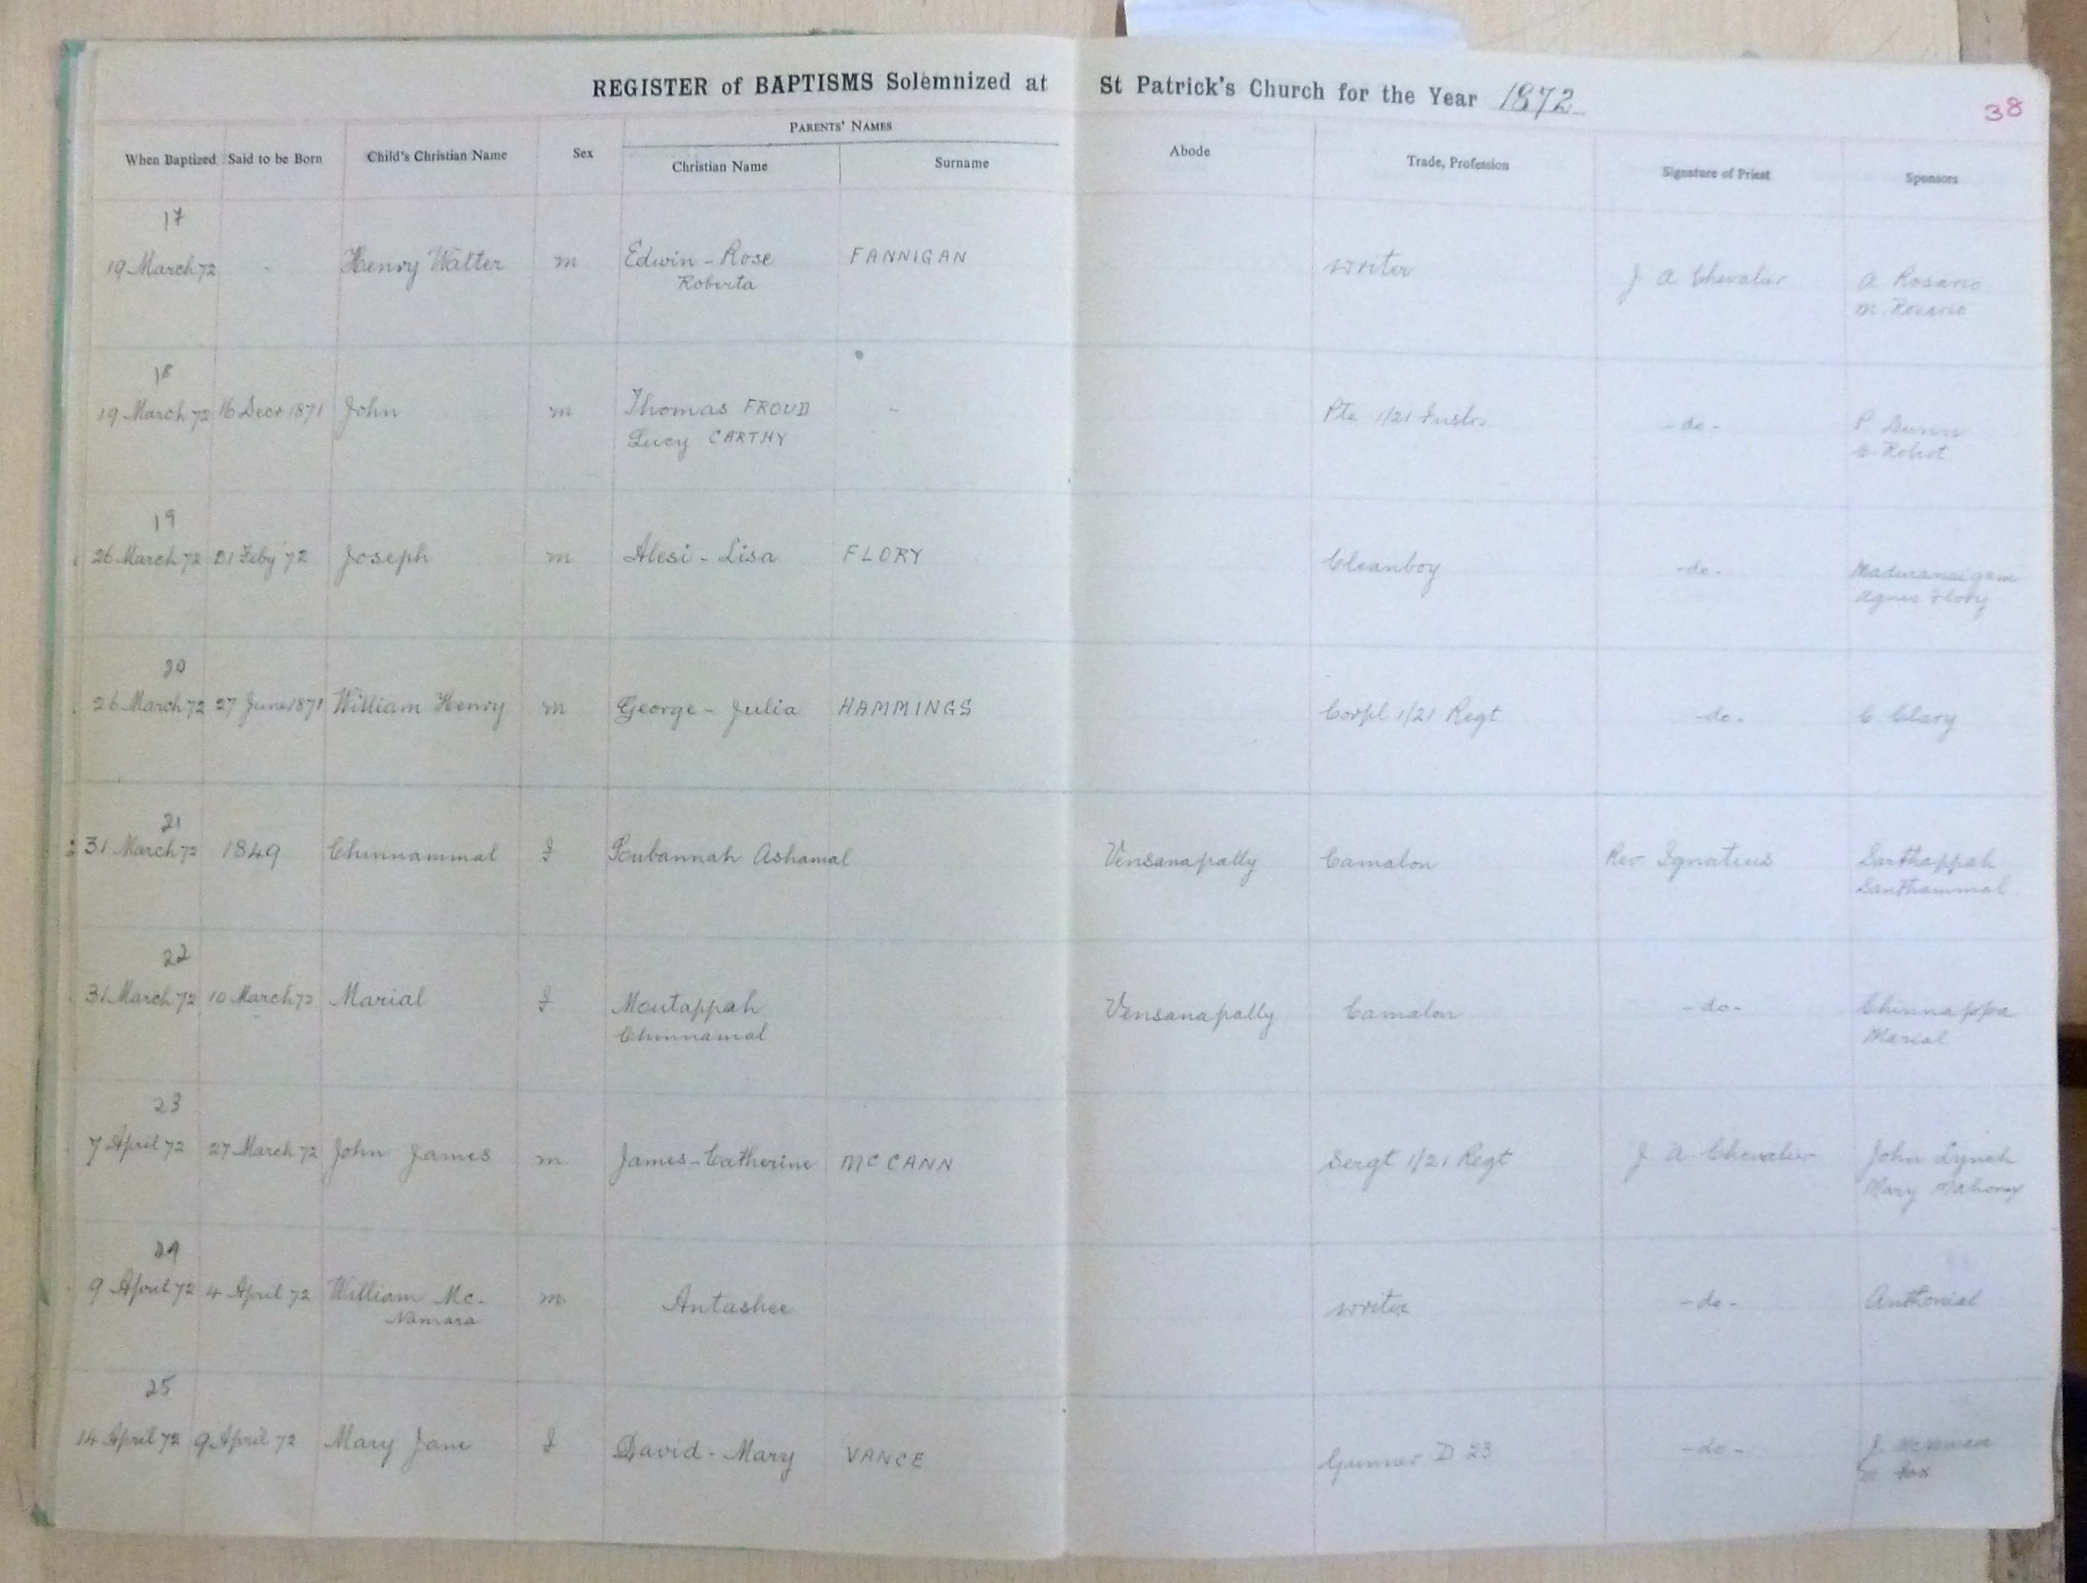 REGISTER of BAPTISMS Solemnized at St Patrick's Church for the Year 1872
38
PARENTS' NAMES
When Baptized Said to be Born Child's Christian Name Sex Christian Name Surname Abode Trade, Profession Signature of Priest Sponsors
17
19 March 72 - Henry Walter m Edwin - Rose FANNIGAN writer J A Chevalier A Rosario
Roberta M. Rosario
18
19 March 72 16 Decr 1871 John m Thomas FROUD - Pte 1/21 Fuslrs - do - P Dunn
Lucy CARTHY
19
26 March 72 21 Feby 72 Joseph m Alesi - Lisa FLORY Cleanboy - do - Maduranaigam
Agnes Flory
20
26 March 72 27 June 1871 William Henry m George - Julia HAMMINGS Corpl 1/21 Regt - do - C. Clary
21
31 March 72 1849 Chinnammal f Subannah Ashamal Vensanapally Camalon Rev Ignatius Sarthappah
Santhammal
22
31 March 72 10 March 72 Marial f Moutappah Vensanapally Camalon - do - Chinnappa
Chinnamal Marial
23
7 April 72 27 March 72 John James m James - Catherine McCANN Sergt 1/21 Regt J A Chevalier John Lynch
Mary Mahony
24
9 April 72 4 April 72 William Mc- m Antashee writer - do - Anthonial
Namara
25
14 April 72 9 April 72 Mary Jane f David - Mary VANCE Gunner D 23 - do - J McNamara
Fox